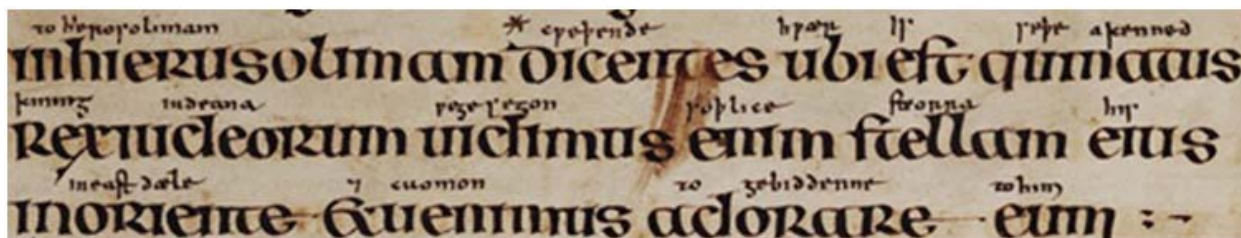 to hierosolimam * cƿeþende hƿær is seþe akenned
inhierusolimam dicentes ubi est quinatus
kining iudeana ƿegesegon soþlice steorra his
rex iudeorum uidimus enim stellam eius
in east dæle ⁊ cuomon to gebiddenne tohim
inoriente & uenimus adorare eum :-